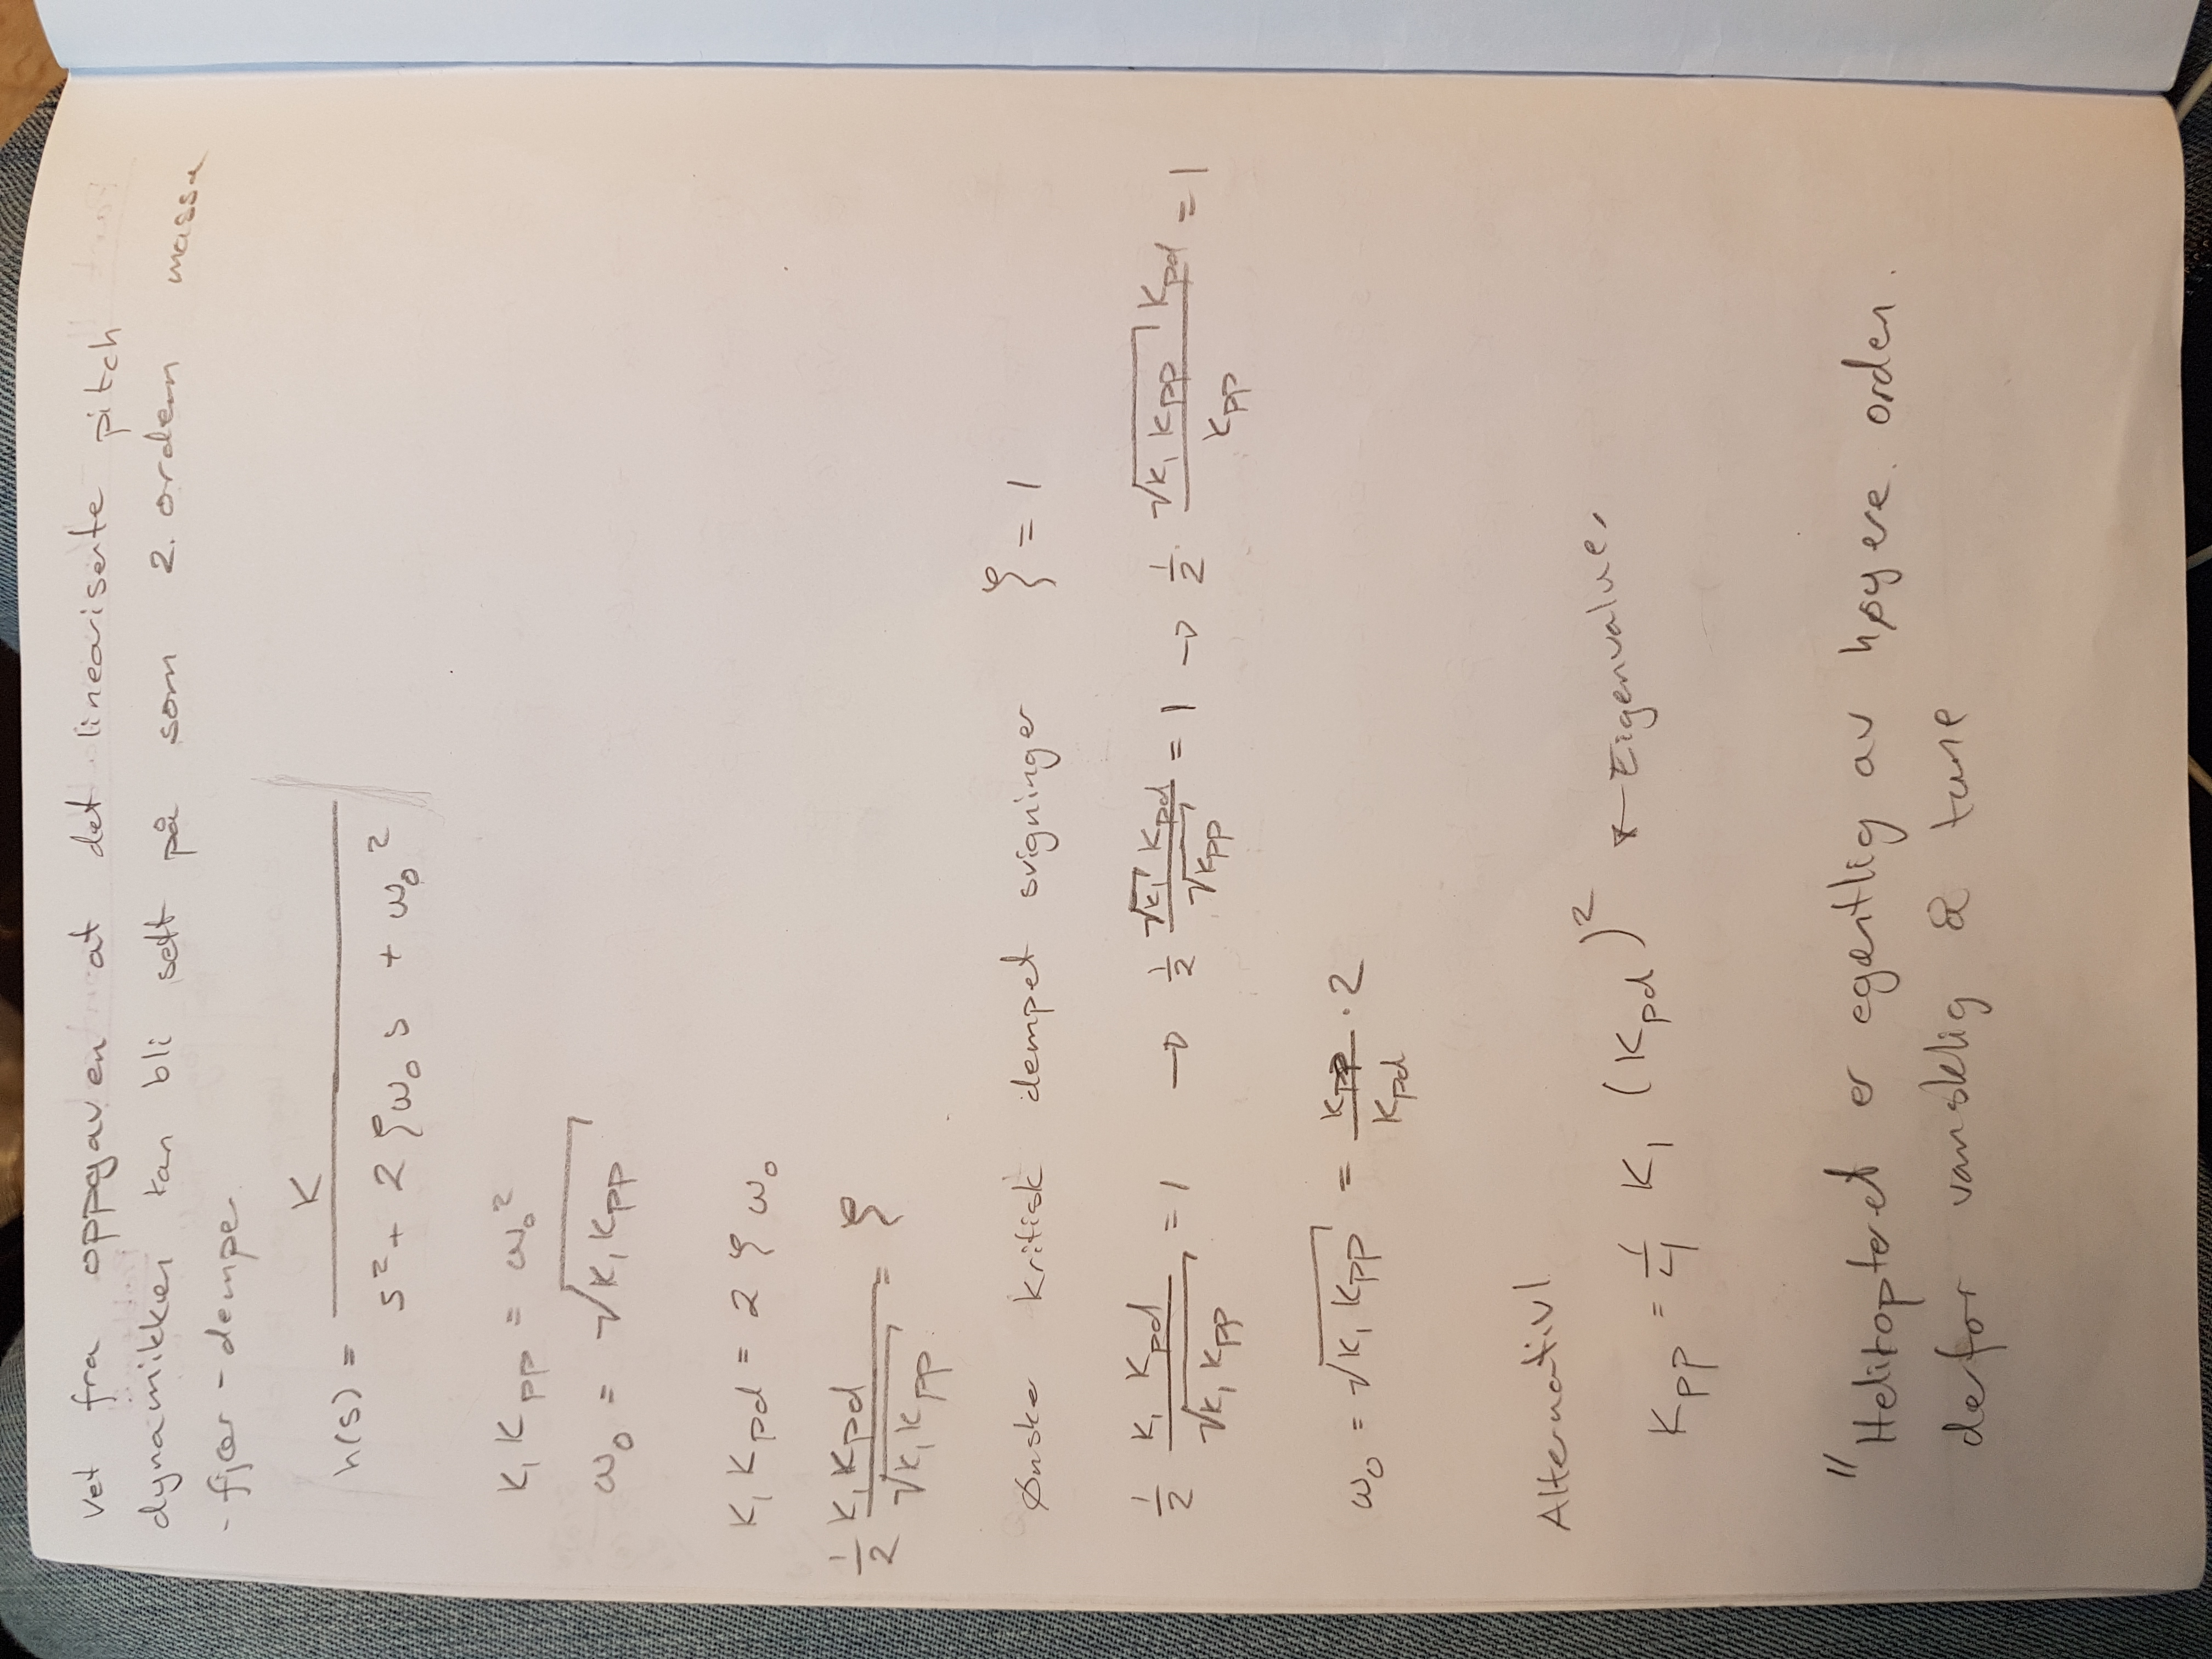 Vet fra oppgaven at det lineariserte pitch
dynamikken kan bli sett på som 2. orden masse
- fjær - demper
h(s) = K / (s² + 2ζω₀s + ω₀²)
K₁Kpp = ω₀²
ω₀ = √(K₁Kpp)
K₁Kpd = 2ζω₀
1/2 K₁Kpd / √(K₁Kpp) = ζ
Ønske kritisk dempet svigninger ζ = 1
1/2 K₁Kpd / √(K₁Kpp) = 1 → 1/2 √K₁ Kpd / √Kpp = 1 → 1/2 · √(K₁Kpp) Kpd / Kpp = 1
ω₀ = √(K₁Kpp) = Kpp/Kpd · 2
Alternativ!
Kpp = 1/4 K₁ (Kpd)² ← Eigenvalue.
"Helikopteret er egentlig av høyere orden.
derfor vansklig å tune